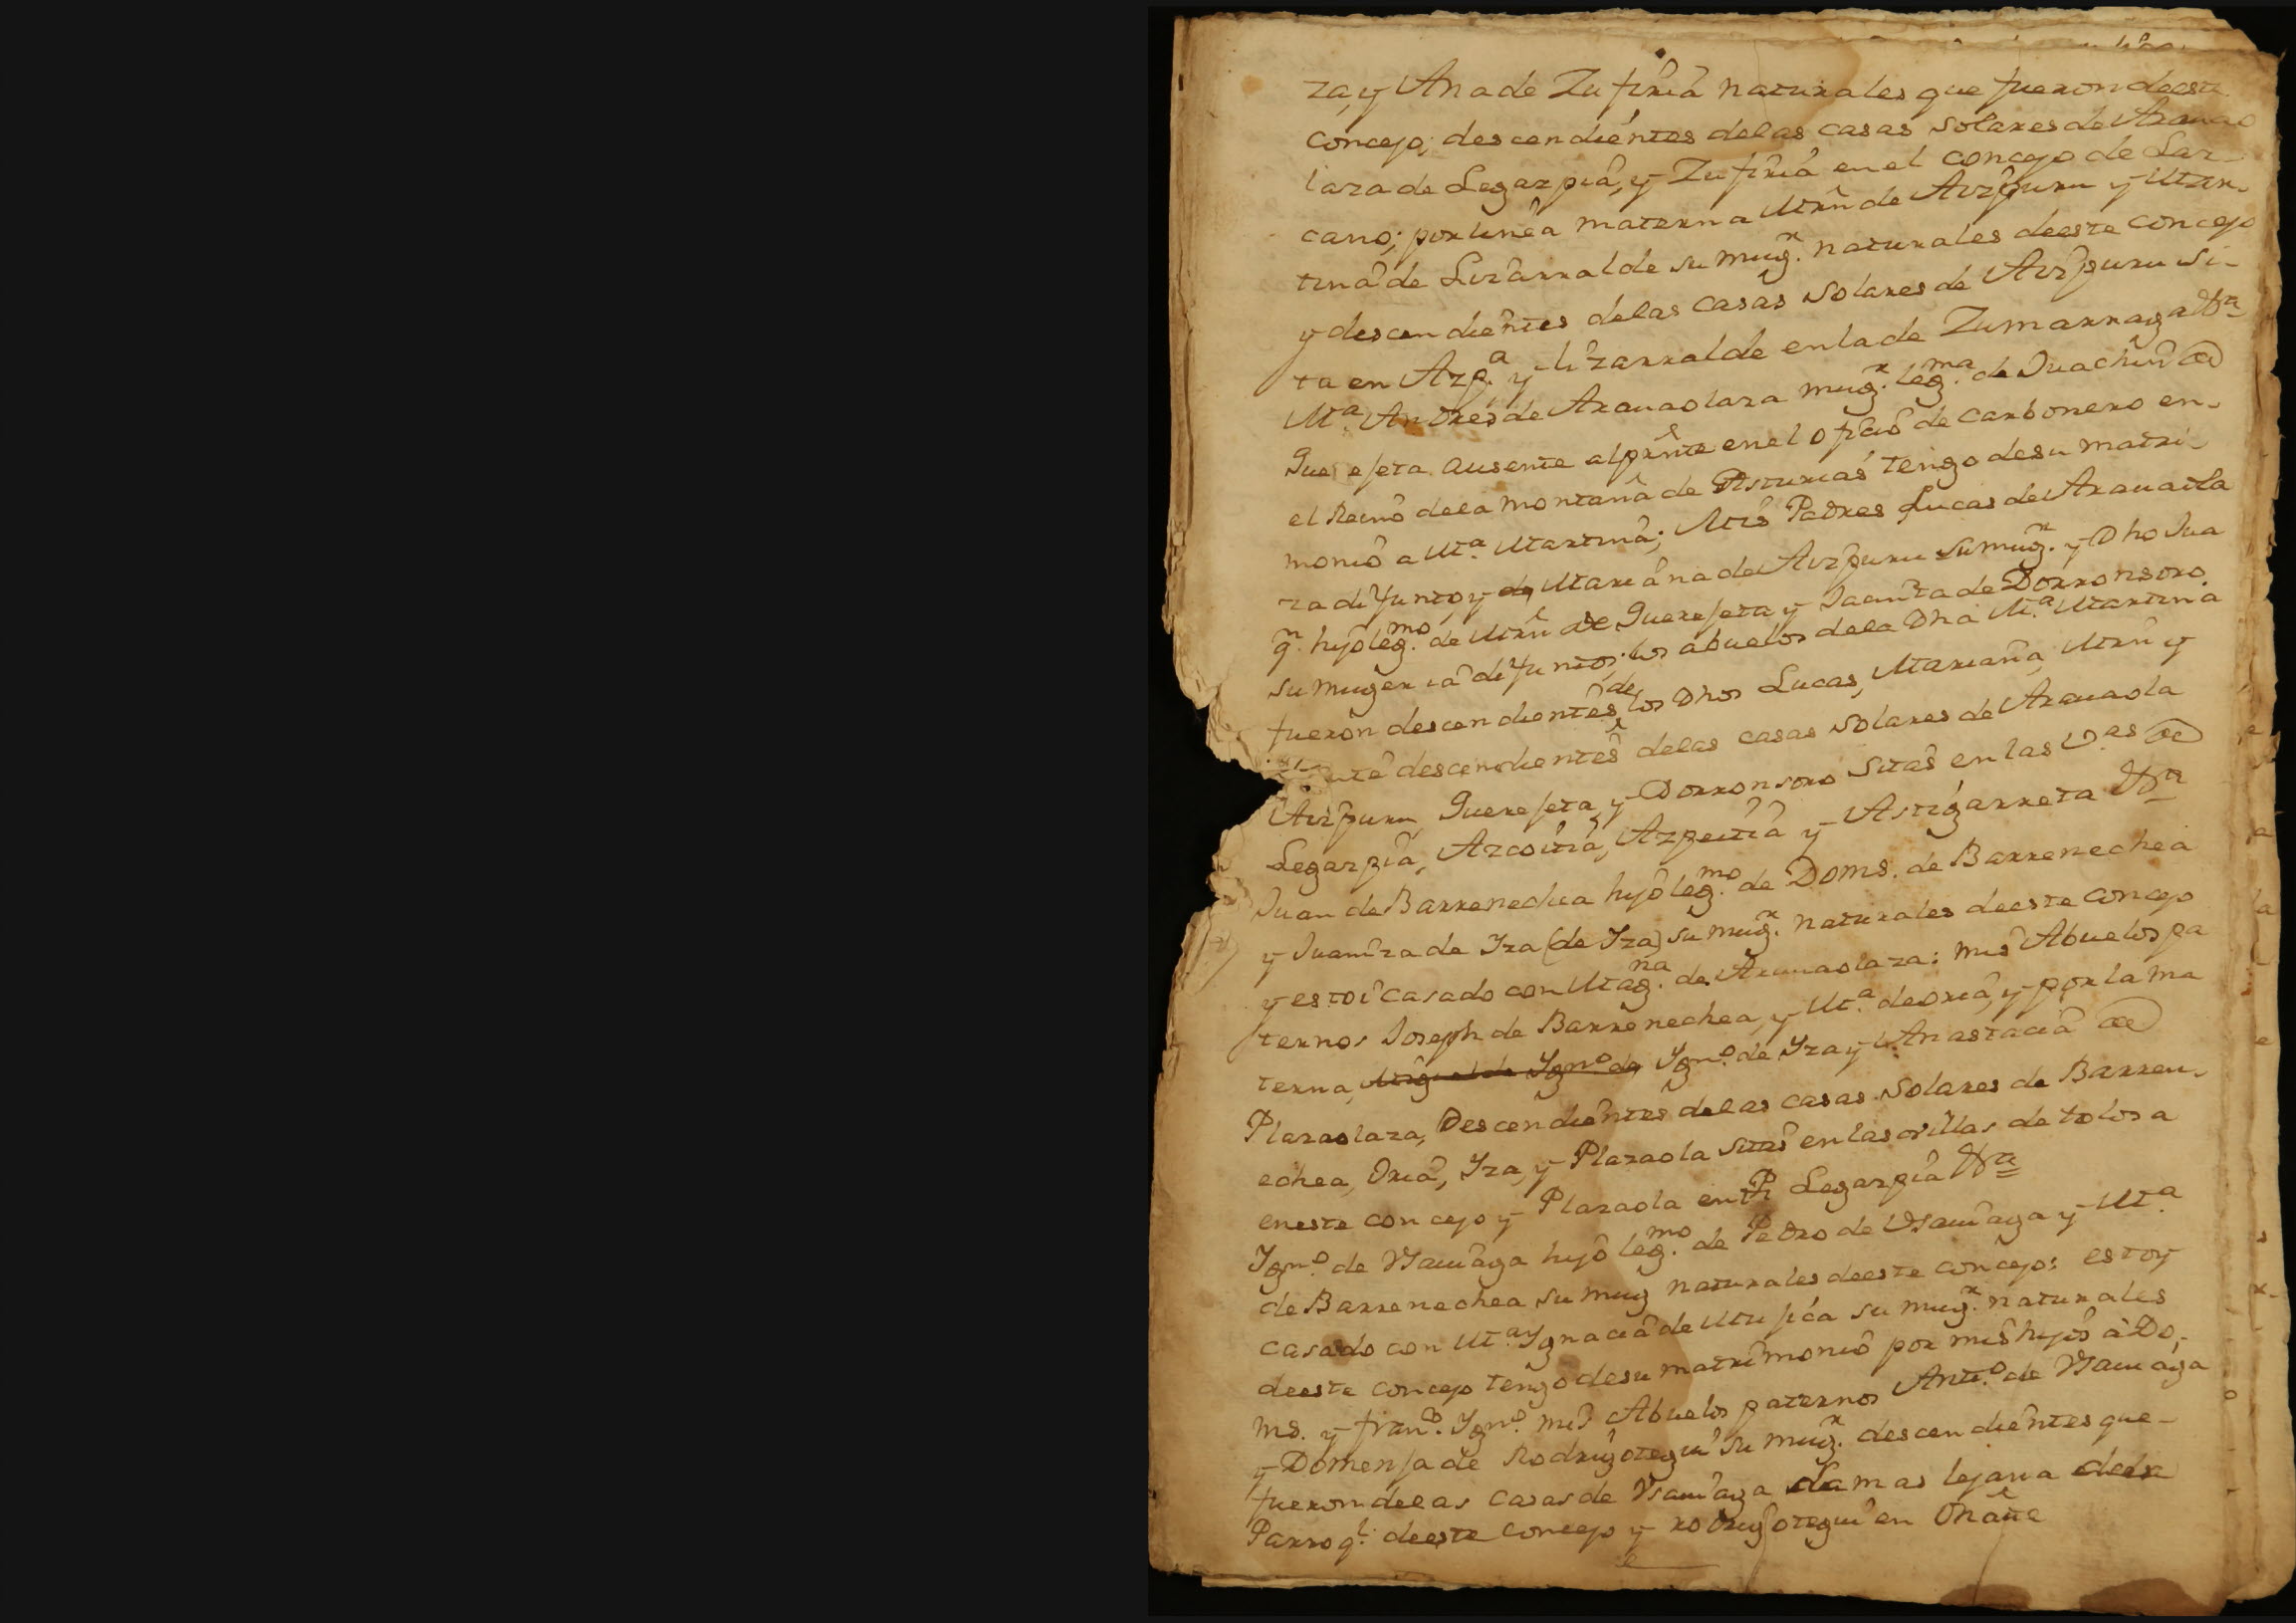 za, y Ana de Zufiria naturales que fueron deeste
concejo; descendientes delas casas solares de Arauao
laza de Legazpia, y Zufiria en el concejo de Laz-
cano; por linea materna Mrn de Aizpuru y Mar-
tina de Lizarralde su mug.r naturales deeste concejo
y descendientes delas casas solares de Aizpuru si-
ta en Azp.a y lizarralde enlade Zumarraga
M.a Andres de Arauaolaza mug.r leg.ma de Juachin de
Guerejeta ausente al prnte enel oficio de carbonero en-
el Reino dela montaña de Asturias tengo desu matri-
monio a M.a Martina; Mis Padres Lucas de Arauaola
za difunto, y de Mariana de Aizpuru su mug.r y Dho Jua
q.n hijo leg.mo de Mrn de Guerejeta y Jacinta de Dorronsoro
su muger ia difuntos; los abuelos dela Dha M.a Martina
fueron descendientes de los Dhos Lucas, Mariana, Mrn y
descendientes delas casas solares de Arauaola
Aizpuru, Guerejeta, y Dorronsoro sitas en las V.as de
Legazpia, Azcoitia, Azpeitia y Astigarreta
Juan de Barrenechea hijo leg.mo de Doms. de Barrenechea
y Juaniza de Yza (de Yza) su mug.r naturales deeste concejo
y estoi casado con Mag.na de Arauaolaza: mis Abuelos pa
ternos Joseph de Barrenechea, y M.a de oria, y por la ma
terna, Miguel de Ygn.o de Ygn.o de Yza y Anastacia de
Plazaolaza, Descendientes delas casas solares de Barren-
echea, Oria, Yza, y Plazaola sitas en las orillas de tolosa
eneste concejo y Plazaola en Legazpia
Ygn.o de Vsauiaga hijo leg.mo de Pedro de Vsauiaga y M.a
de Barrenechea su mug naturales deeste concejo: estoy
casado con M.a Ygnacia de Mujica su mug.r naturales
deeste concejo tengo desu matrimonio por mis hijos a Do,-
ms. y fran.co Ygn.o mis Abuelos paternos Ant.o de Vsauiaga
y Domenja de Rodrigotegui su mug.r descendientes que-
fueron delas casas de Vsauiaga La mas lejana dela
Parroq.l deeste concejo y rodrigotegui en Oñate